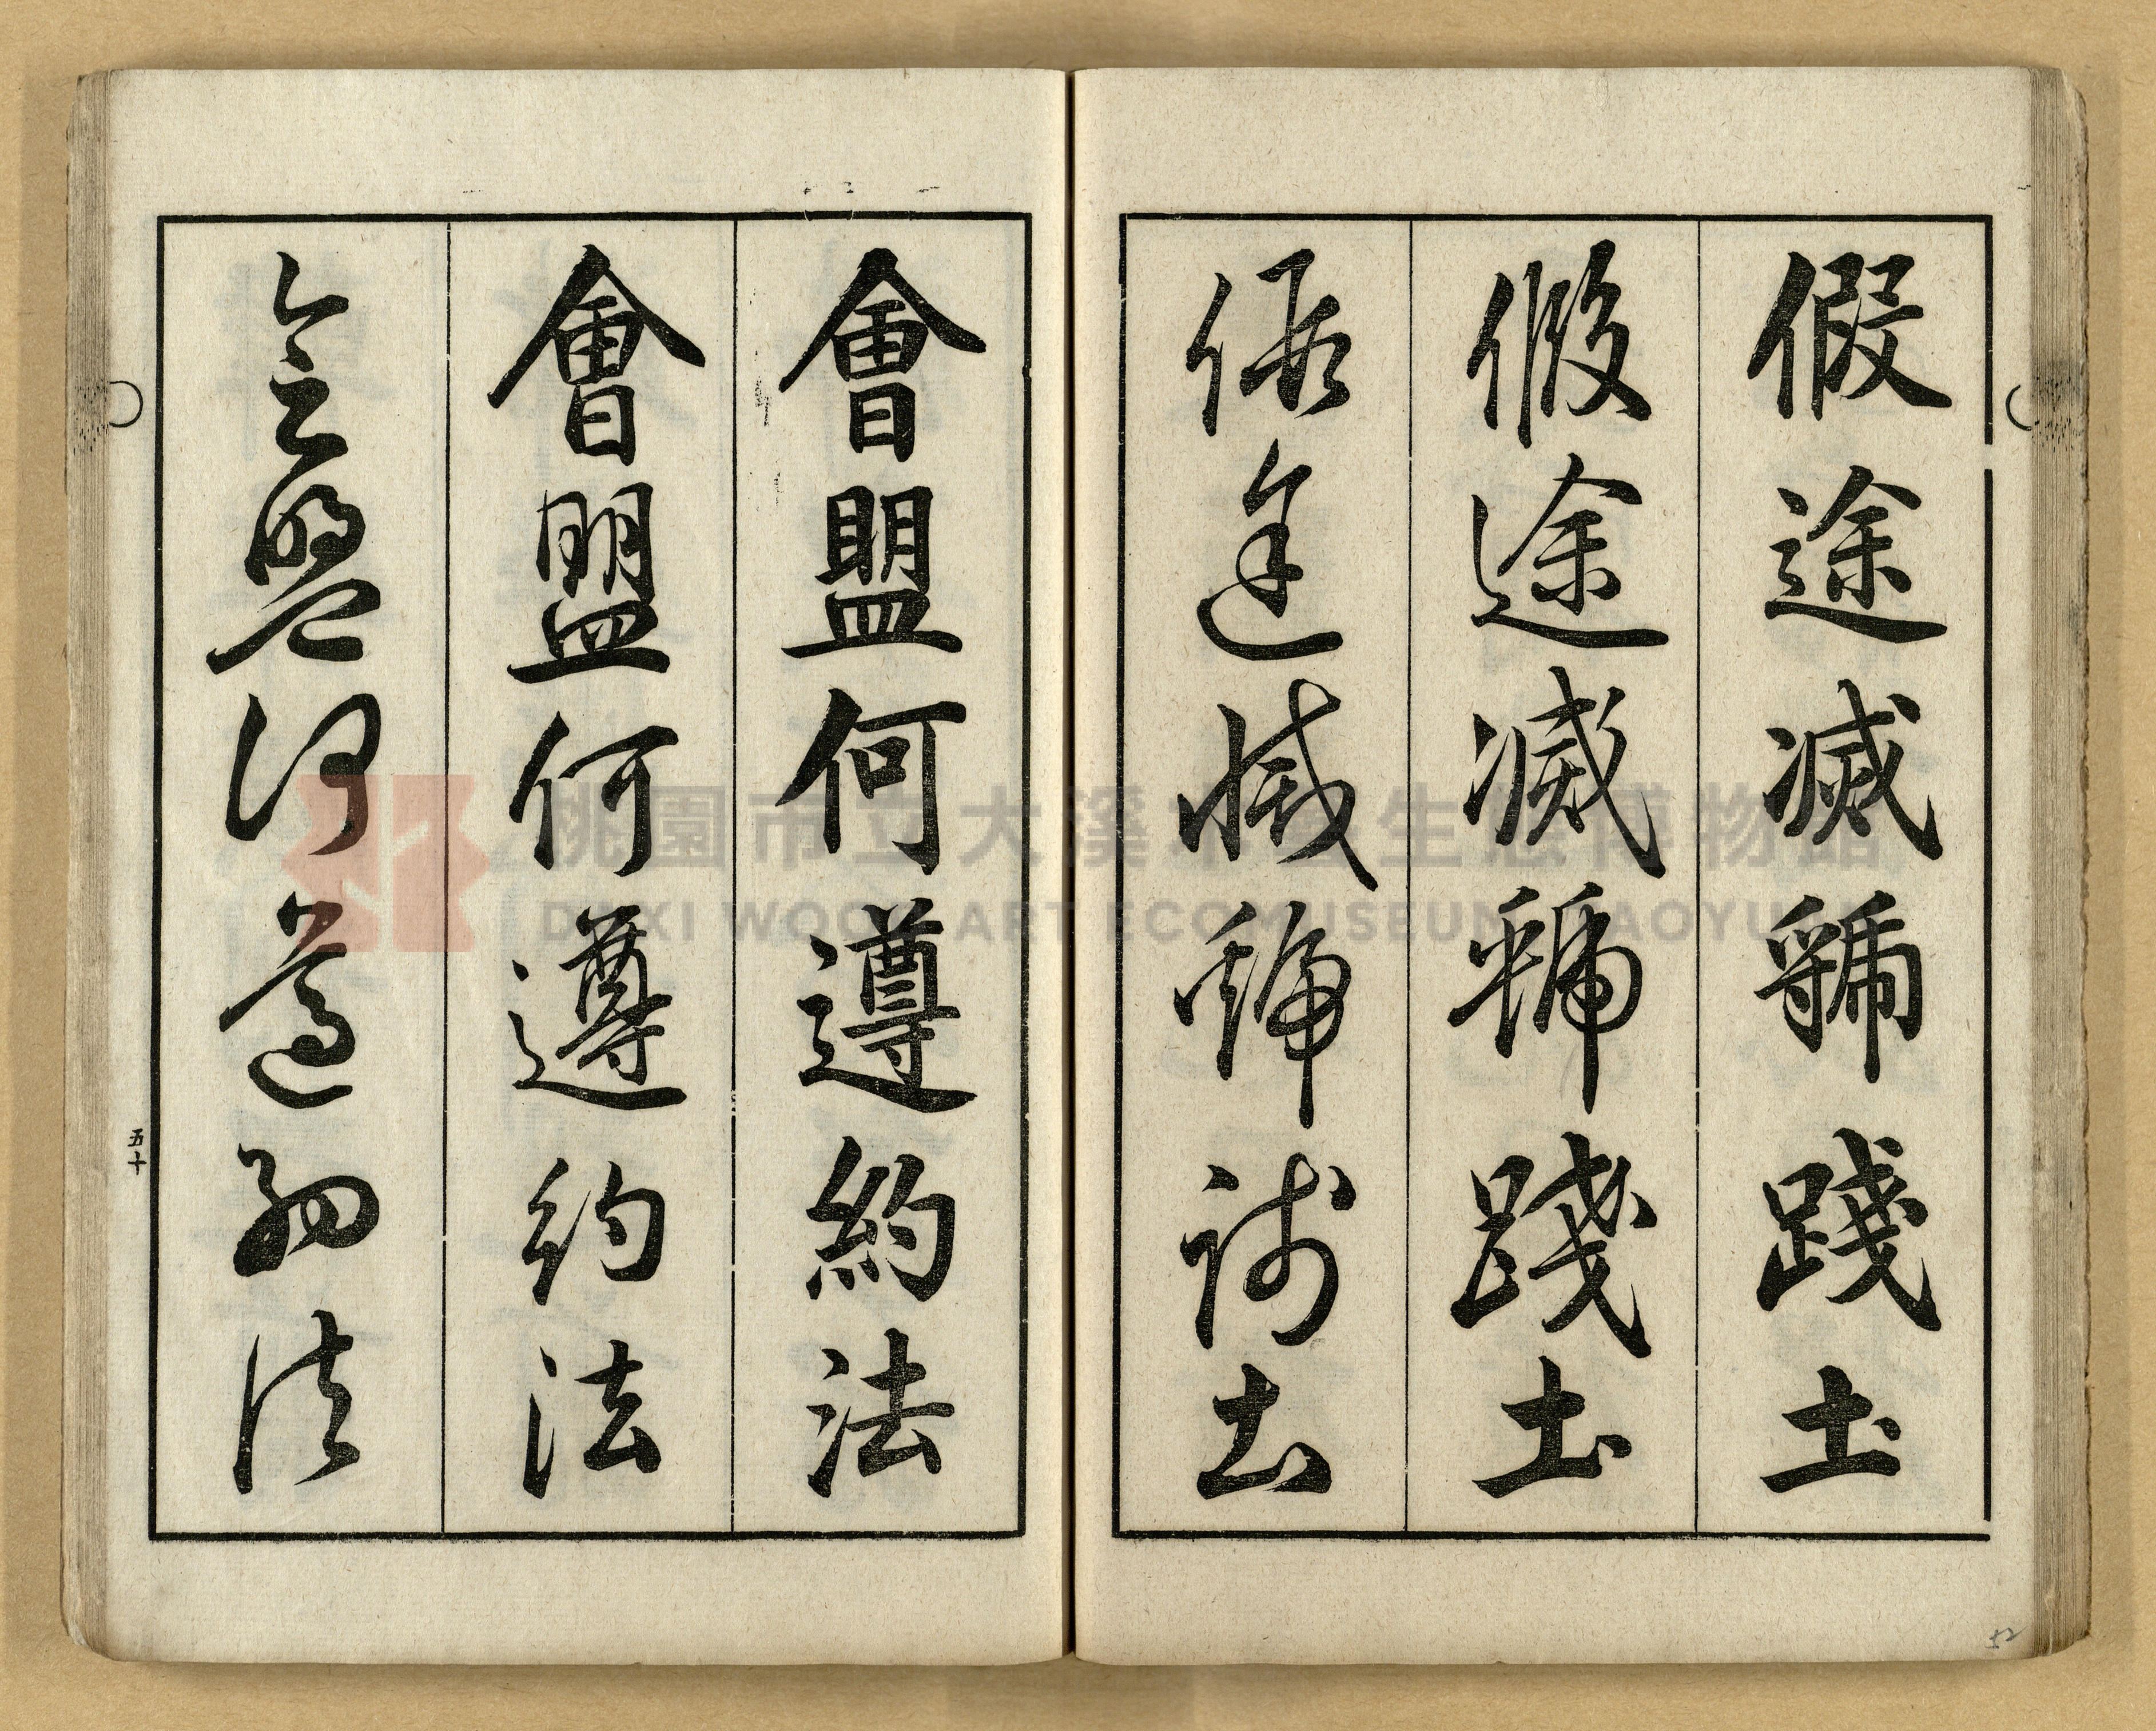 假途滅虢踐土
假途滅虢踐土
假途滅虢踐土
會盟何遵約法
會盟何遵約法
會盟何遵約法
五十
52
桃園市立大溪木藝生態博物館
DAXI WOOD ART ECOMUSEUM, TAOYUAN